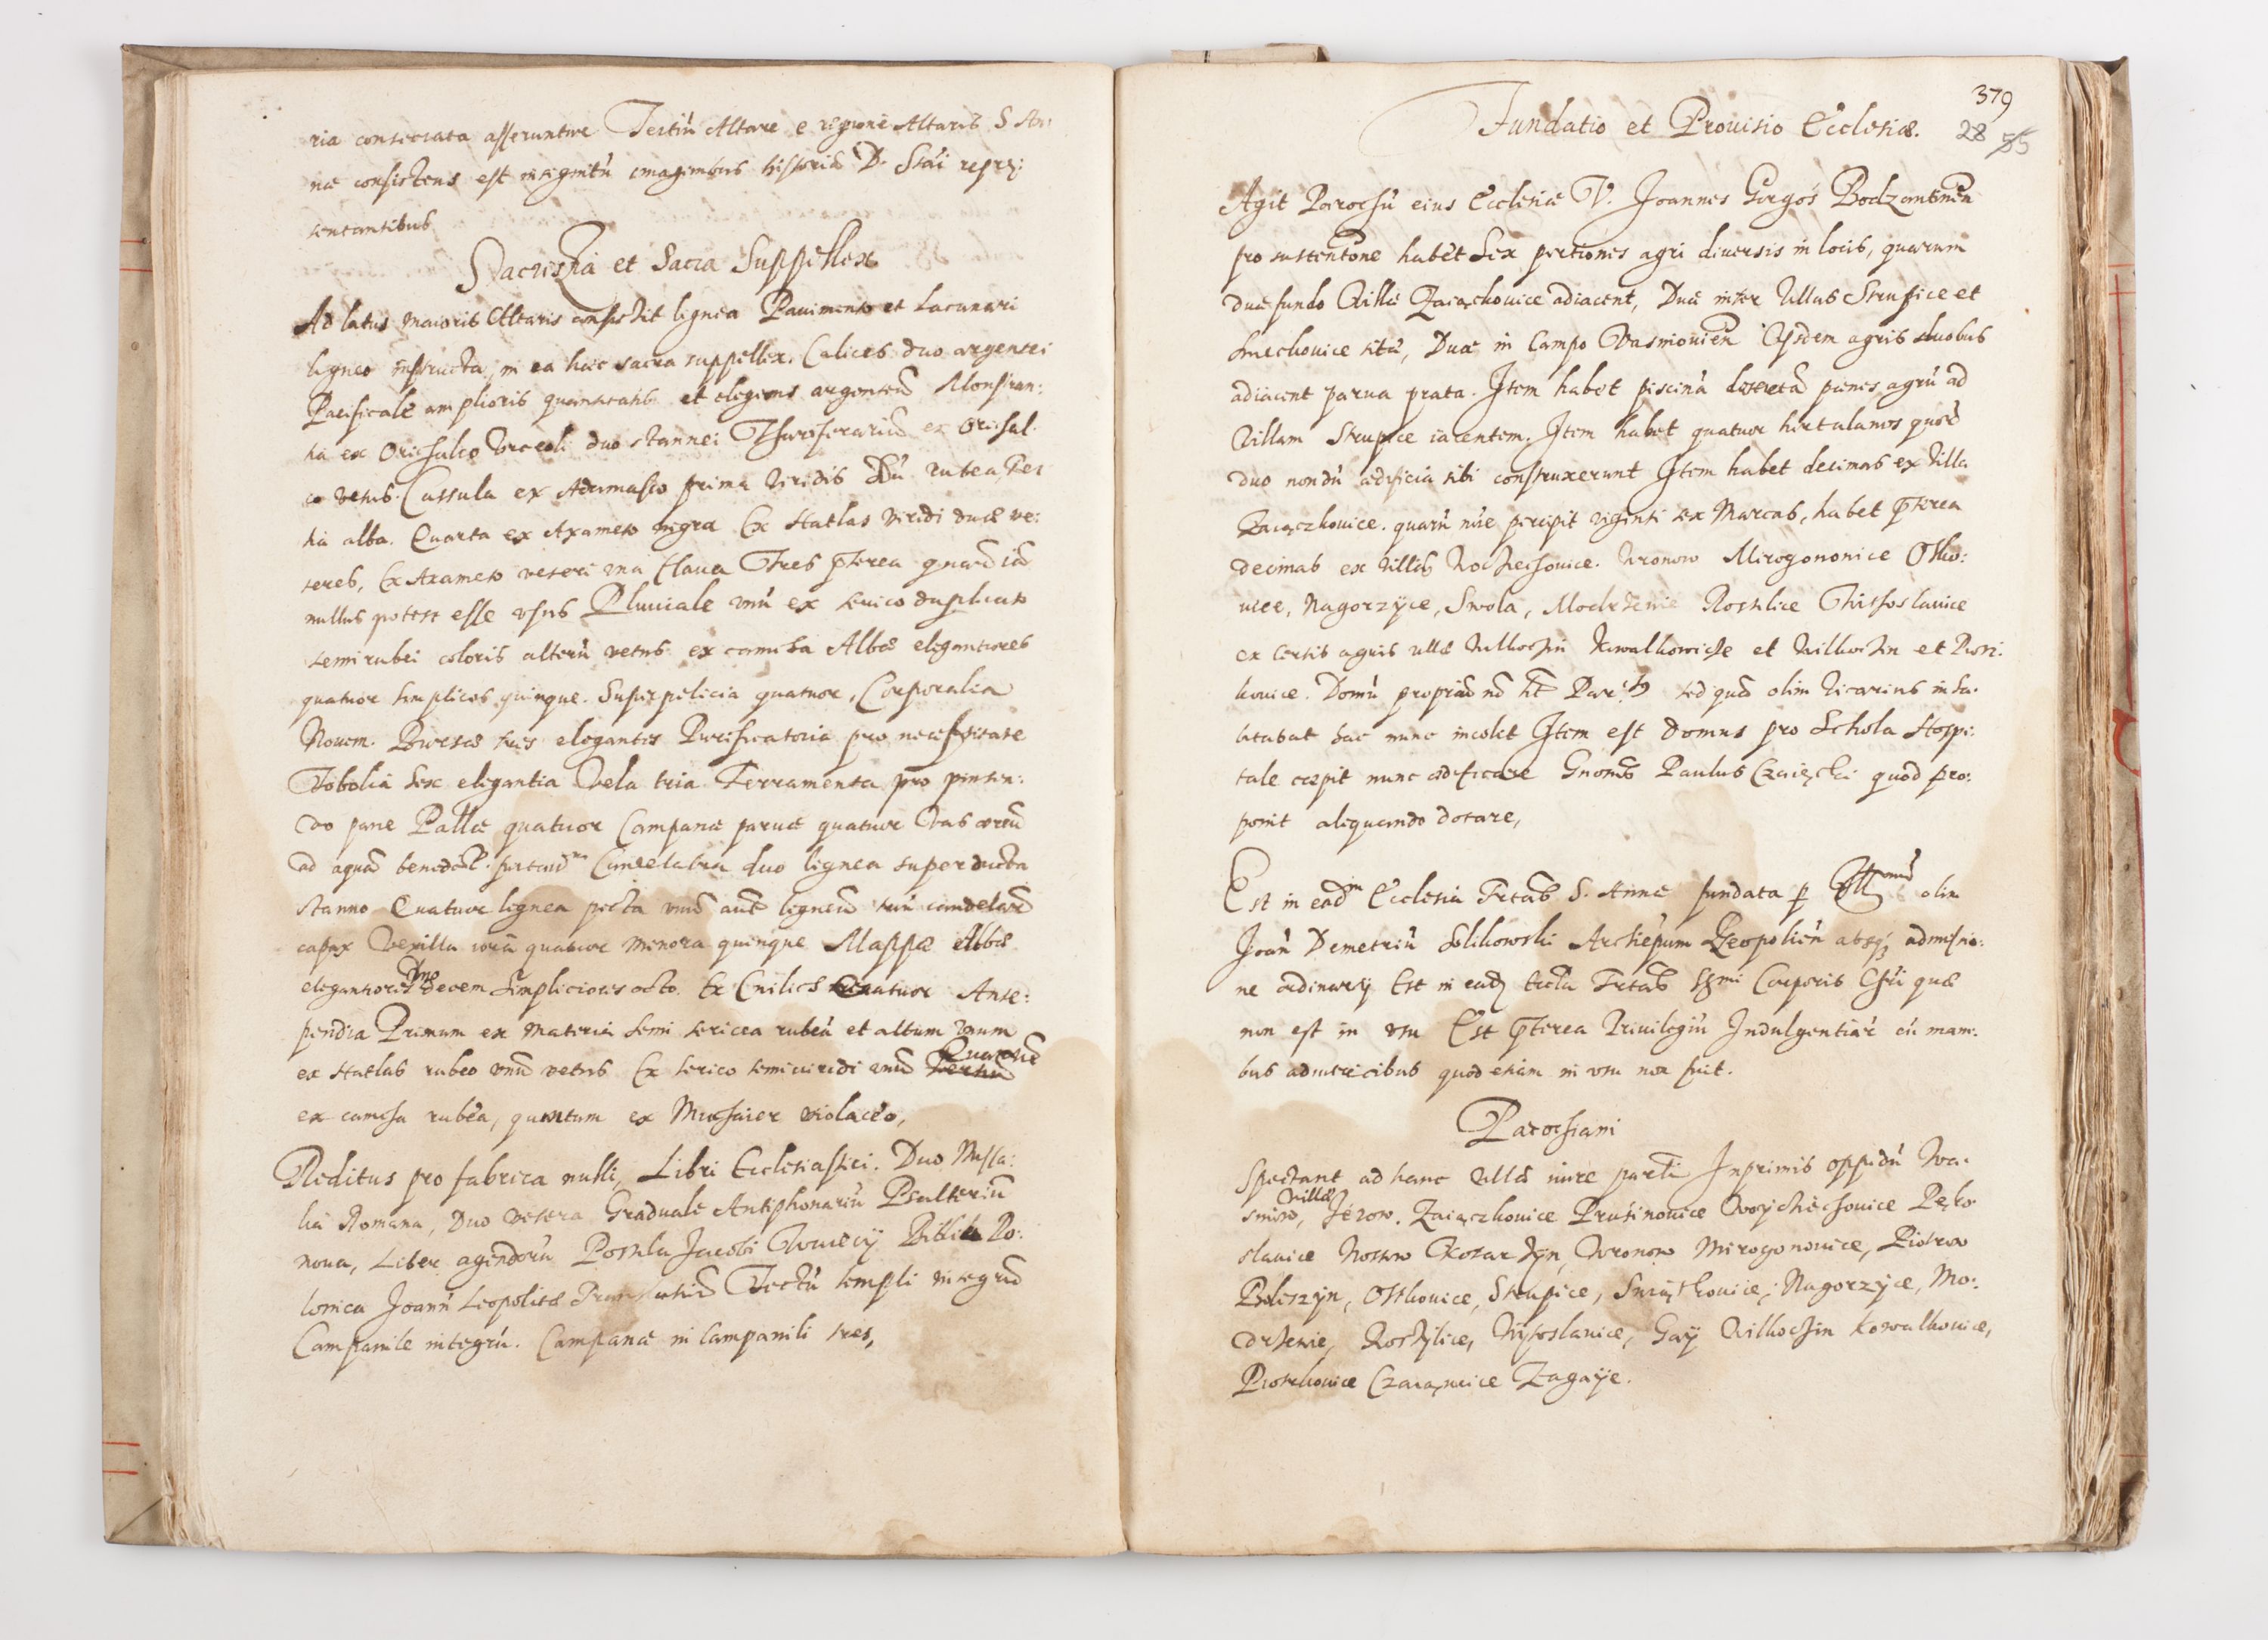 ria consecrata asseruntur Tertiũ Altare e regione Altaris S An
næ consistens est insignitũ imaginibus historiã D. Stãi repræ:
sentantibus
Sacristia et Sacra Suppellex
Ad latus maioris Altaris consistit lignea Pavimento et Lacunari
ligneo instructa, in ea hæc sacra suppellex. Calices duo argentei
Pacificale amplioris quantitatis et elegens argenteũ Monstran:
tia ex Orichalco Urceoli duo stannei Thuriferariũ ex Orichal
co vetus. Cassula ex Adamasco prima viridis Dũ rubea, Ter
tia alba. Quarta ex Axameto nigra Ex Hatlas viridi duæ ve:
teres, Ex Axameto veteri una flava Tres pterea quarũ iã
nullus potest esse usus Pluviale unũ ex serico duplicato
semirubei coloris alterũ vetus ex camcha Albæ elegantiores
quatuor simplices quinque. Superpelicia quatuor, Corporalia
Novem. Bursæ tres elegantes Purificatoria pro necessitate
Tobolia sex elegantia Vela tria Ferramenta pro pinsen:
do pane Pallæ quatuor Campanæ parvæ quatuor Vas æreũ
ad aquã Candelabra duo lignea superducta
stanno Quatuor lignea picta unũ aut ligneũ triũ candelarũ
capax Vexilla quatuor minora quinque Mappæ Albæ
elegantiores Duo decem Simpliciores octo. Ex Quatuor Ante:
pendia Primum ex materia semi sericea rubea et altum unum
ex Hatlas rubeo unũ vetus Ex serico semiviridi unũ Quartũ
ex camcha rubea, quartum ex Muchaier violaceo,
Reditus pro fabrica nulli, Libri Ecclesiastici. Duo Missa:
lia Romana, Duo vetera Graduale Antiphonariũ Psalteriũ
nova, Liber agendorũ Postilla Jacobi Wuiecij Biblia Po:
lonica Joanñ Leopolitæ Tectũ templi integrũ
Campanile integrũ. Campanæ in Campanili tres,
379
28 55
Fundatio et Prouisio Ecclesiæ.
Agit Parochũ eius Ecclesiæ V. Joannes Gorgos Bodzantinen
pro sustentone habet Sex portiones agri diuersis in locis, quarum
duæ fundo Villæ Zaiączkouice adiacent, Duæ inter Villas Strupice et
Smechouice sitæ, Duæ in Campo Vasniouien Ijsdem agris duobus
adiacent parua prata. Item habet piscinã desertã penes agrũ ad
Villam Strupice iacentem. Item habet quatuor hortulanos quorũ
duo nondũ ædificia sibi construxerunt Item habet decimas ex Villa
Zaiączkouice. quarũ nũc percipit viginti sex Marcas, habet pterea
decimas ex Villis Woicziechouice. Wronow Mirogonouice Ostko:
uice, Nagorzyce, Swola, Modrzewie Rostilice Witoslauice
ex certis agris Villæ Kowalkowicze et Wilkochin et Piotr:
kouice. Domũ propriã nõ ht Par: sed quã olim Vicarius inha:
bitabat hac nunc incolet Item est domus pro Schola Hospi:
tale cœpit nunc ædificare Gnosus Paulus Czaięcki quod pro:
ponit aliquando dotare,
Est in eadm Ecclesia Frtas S. Annæ fundata p Illmũ olim
Joañ Demetriũ Solikowski Archiepum Leopolien absqꝫ admissio:
ne ordinarij Est in eadꝫ Eccla Frtas SSmi Corporis Chri quæ
non est in usu Est pterea Privilegiũ Indulgentiarũ cũ mam:
bus quod etiam in usu non fuit.
Parochiani
Spectant ad hanc villæ iure parti Inprimis oppidũ Wa:
sniow, Villæ Jezow, Zaiączkouice Prusinouice Woyciechouice Pęko
slauice Nosow Kotarszyn, Wronow Mirogonouice, Piotrow
Boleszyn, Ostkouice, Strupice, Smiątkouice, Nagorzyce, Mo:
drzewie, Rostylice, Witoslauice, Gaÿ Wilkochin Kowalkouice,
Piotrkouice Czaiącice Zagaÿe.